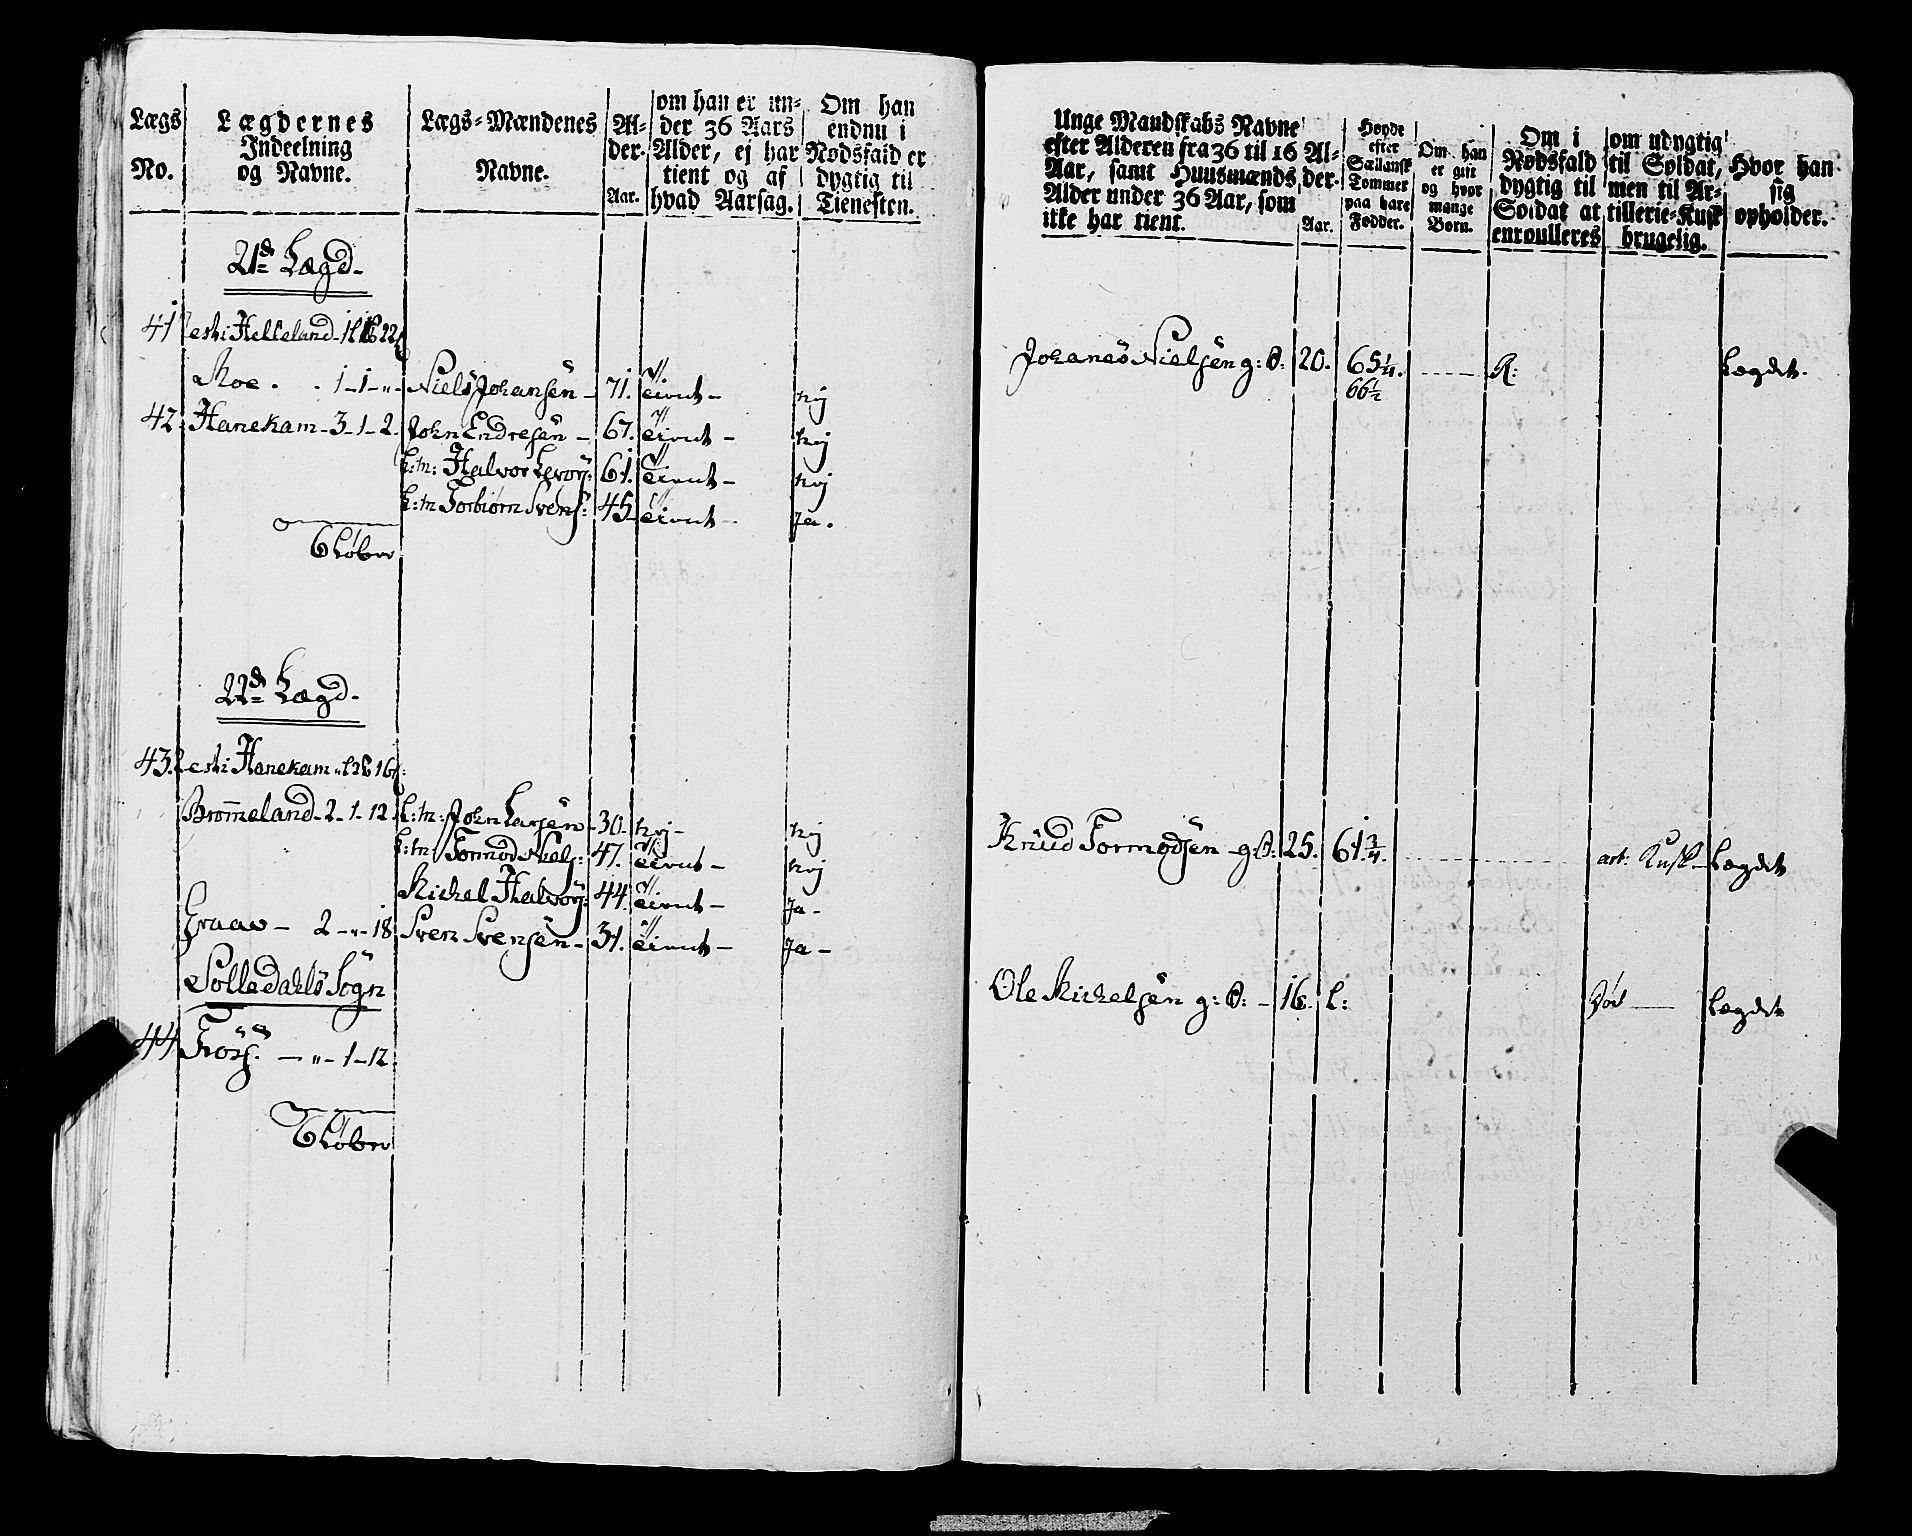 Lægs No.
Lægdernes Indeelning og Navne.
Lægs-Mændenes Navne.
Al-der. Aar.
om han er un-
der 36 Aars
Alder, ej har
tient og af
hvad Aarsag.
Om han
endnu i
Nødsfald er
dygtig til
Tienesten.
21de Lægd.
41 Resti Helleland
Moe. 1-1-„- Niels Johansen - 71. tient - Nej
42. Hanekam - 3-1-2. John Endresen - 67. tient - Nej
H:m: Halvor 61. tient - Nej
H:m: Torbiørn Svens: 45 tient - Ja.
6 Løber
22de Lægd.
43. Resti Hanekam
Brommeland - 2-1-12. H:m: John Larsen - 30- Nej - Nej
H:m: Tormod Niels: 47. tient - Nej
Michel Halvors: 44. tient - Ja -
Graae - 2-„-18 Sven Svensen - 31. tient - Ja -
Solledahls Sogn
44 - „-1-12.
6 Løber
Unge Mandskabs Navne
efter Alderen fra 36 til 16
Aar, samt Huusmænds
Alder under 36 Aar, som
ikke har tient.
Al-
der.
Aar.
Høyde
efter
Siællansk
Tommer
paa bare
Fødder.
Om han
er gift
og hvor
mange
Børn.
Om i
Nødsfald
dygtig til
Soldat at
enroulleres
om udygtig
til Soldat,
men til Ar-
tillerie-Kusk
brugelig.
Hvor han
sig
opholder.
Johanes Nielsen g: S: 20. 65 1/4. R: Lægdet.
66 1/2
Knud Tormodsen - g: S: 25. 61 3/4. art: Kusk - Lægdet
Ole Michelsen g: S: - 16. L: Død Lægdet